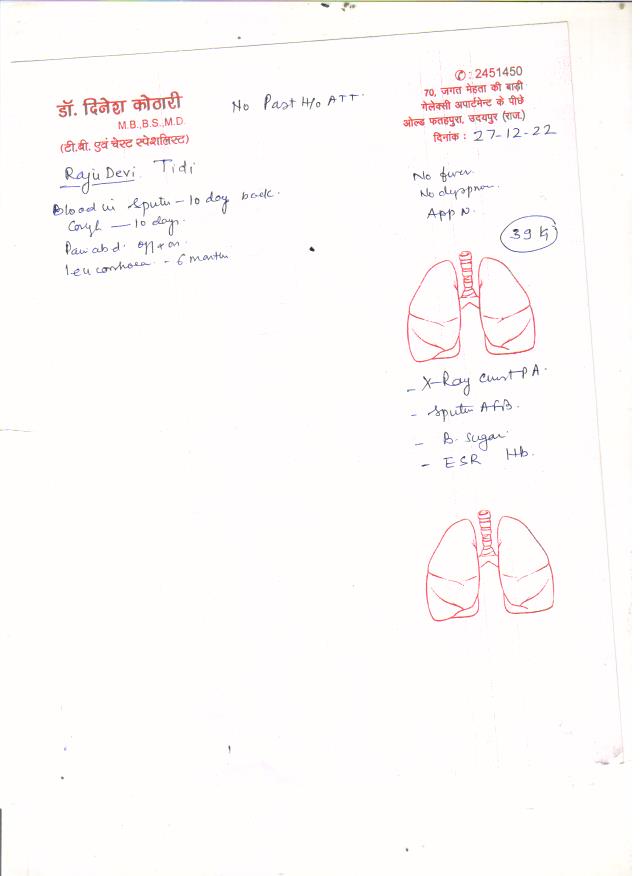 डॉ. दिनेश कोठारी
M.B.,B.S.,M.D.
(टी.बी. एवं चेस्ट स्पेशलिस्ट)
No Past H/o ATT.
✆ : 2451450
70, जगत मेहता की बाड़ी
गेलेक्सी अपार्टमेन्ट के पीछे
ओल्ड फतहपुरा, उदयपुर (राज.)
दिनांक : 27-12-22
Raju Devi. Tidi
Blood in Sputu - 10 day back.
Cough - 10 days.
Pain abd. off + on.
Leucorrhoea. - 6 months
No fever
No dyspnoea
App N.
39 kg
- X-Ray chest PA.
- Sputum AFB.
- B. Sugar
- ESR Hb.